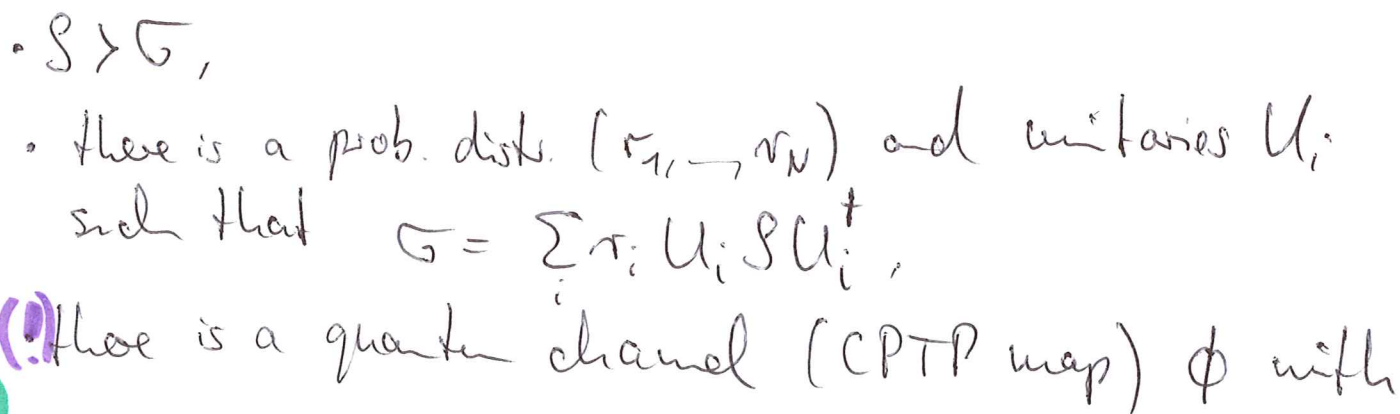 • ρ ≻ σ,
• there is a prob. distr. (r₁, ..., r_N) and unitaries U_i
such that σ = Σ_i r_i U_i ρ U_i†,
(!) • there is a quantum channel (CPTP map) ϕ with